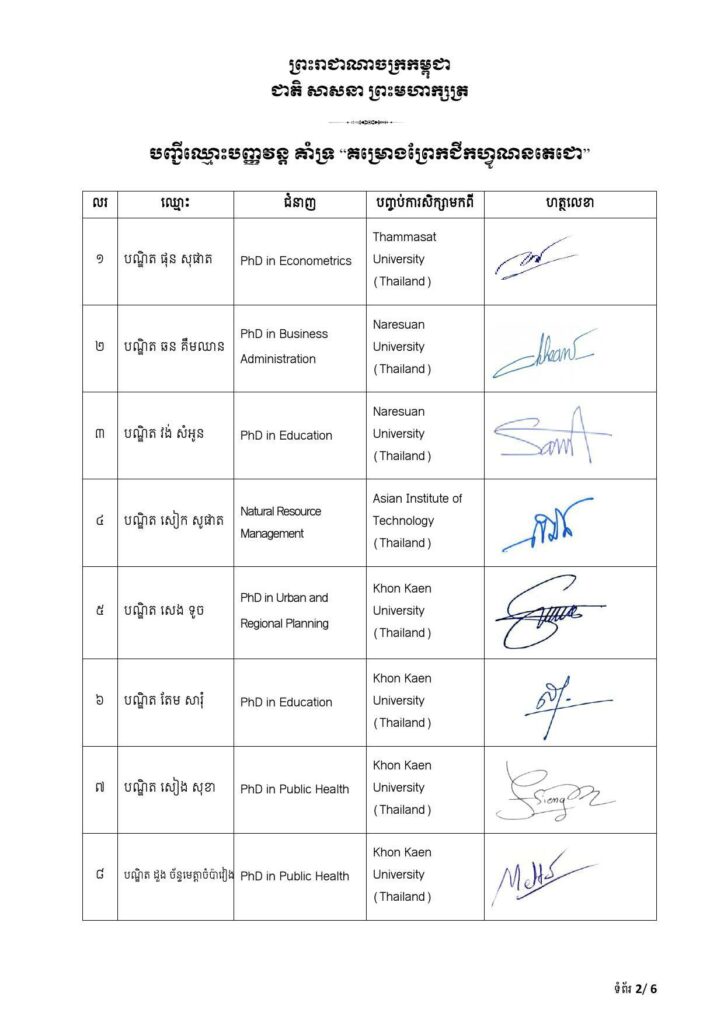 ព្រះរាជាណាចក្រកម្ពុជា
ជាតិ សាសនា ព្រះមហាក្សត្រ
បញ្ជីឈ្មោះបញ្ញវន្ត គាំទ្រ “គម្រោងព្រែកជីកហ្វូណនតេជោ”
លរ ឈ្មោះ ជំនាញ បញ្ចប់ការសិក្សាមកពី ហត្ថលេខា
១ បណ្ឌិត ផុន សុផាត PhD in Econometrics
Thammasat
University
(Thailand)
២ បណ្ឌិត ឆន គឹមឈាន
PhD in Business
Administration
Naresuan
University
(Thailand)
៣ បណ្ឌិត វង់ សំអូន PhD in Education
Naresuan
University
(Thailand)
៤ បណ្ឌិត សៀក សូផាត
Natural Resource
Management
Asian Institute of
Technology
(Thailand)
៥ បណ្ឌិត សេង ទូច
PhD in Urban and
Regional Planning
Khon Kaen
University
(Thailand)
៦ បណ្ឌិត តែម សារុំ PhD in Education
Khon Kaen
University
(Thailand)
៧ បណ្ឌិត សៀង សុខា PhD in Public Health
Khon Kaen
University
(Thailand)
Sieng
៨ បណ្ឌិត ដួង ច័ន្ទមេត្តាចំប៉ាវៀង PhD in Public Health
Khon Kaen
University
(Thailand)
ទំព័រ 2/ 6